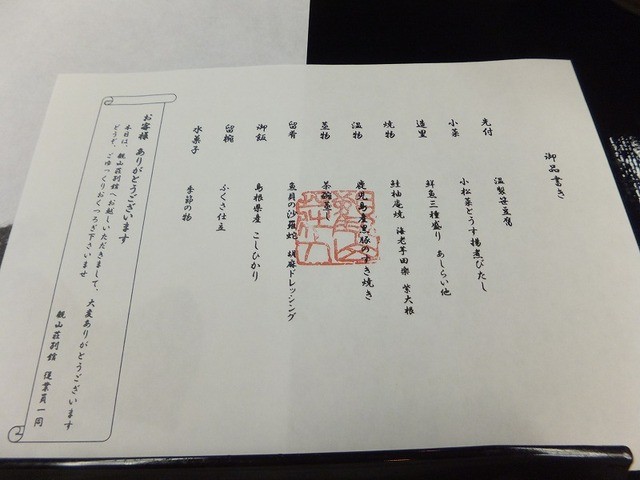 御品書き
先付　温製笹豆腐
小菜　小松菜とうす揚煮びたし
造里　鮮魚三種盛り　あしらい他
焼物　鮭柚庵焼　海老芋田楽　紫大根
温物　鹿児島産黒豚のすき焼き
蒸物　茶碗蒸し
留肴　魚貝の沙羅蛇　胡麻ドレッシング
御飯　島根県産　こしひかり
留椀　ふくさ仕立
水菓子　季節の物
お客様　ありがとうございます
本日は、観山荘別館へお越しいただきまして、大変ありがとうございます
どうぞ、ごゆっくりおくつろぎ下さいませ
観山荘別館　従業員一同